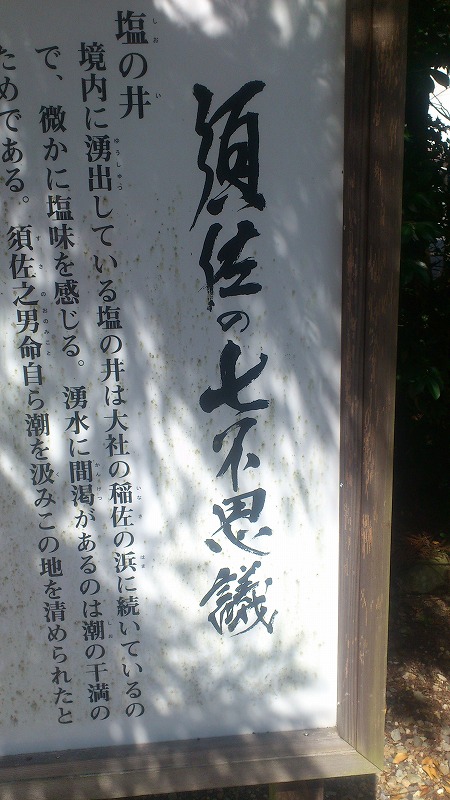 須佐の七不思議
塩の井
境内に湧出している塩の井は大社の稲佐の浜に続いているの
で、微かに塩味を感じる。湧水に間渇があるのは潮の干満の
ためである。須佐之男命自ら潮を汲みこの地を清められたと